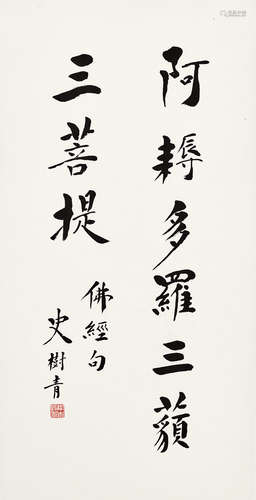 阿耨多羅三藐
三菩提
佛經句
史樹青